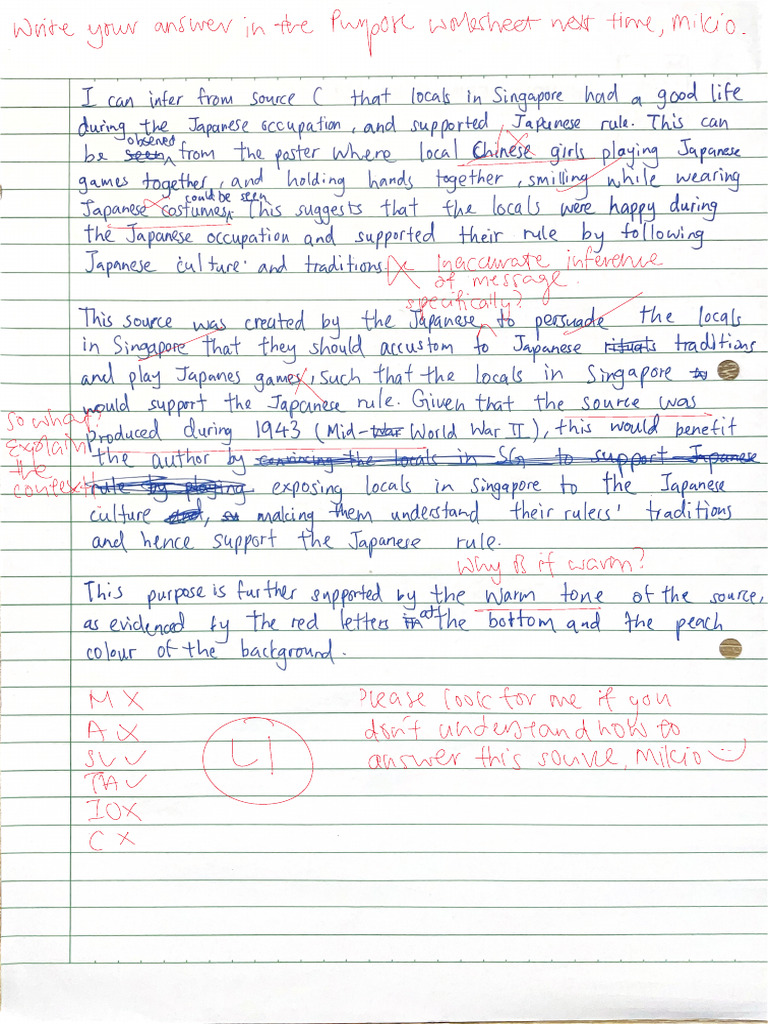 Write your answer in the Purpose worksheet next time, Mikio.
I can infer from source C that locals in Singapore had a good life
during the Japanese occupation, and supported Japanese rule. This can
be seen observed from the poster where local Chinese girls playing Japanese
games together, and holding hands together, smilling while wearing
Japanese costumes could be seen. This suggests that the locals were happy during
the Japanese occupation and supported their rule by following
Japanese culture and traditions.
Inaccurate inference
of message.
specifically?
This source was created by the Japanese to persuade the locals
in Singapore that they should accustom to Japanese rituals traditions
and play Japanes games, such that the locals in Singapore to
would support the Japanese rule. Given that the source was
so what?
Explain
the
context
produced during 1943 (Mid-war World War II), this would benefit
the author by convincing the locals in SG to support Japanese
rule by playing exposing locals in Singapore to the Japanese
culture and, so making them understand their rulers' traditions
and hence support the Japanese rule.
Why is it warm?
This purpose is further supported by the warm tone of the source,
as evidenced by the red letters in at the bottom and the peach
colour of the background.
M X
A X
SV ✓
TA ✓
IO X
C X
L1
Please look for me if you
don't understand how to
answer this source, Mikio